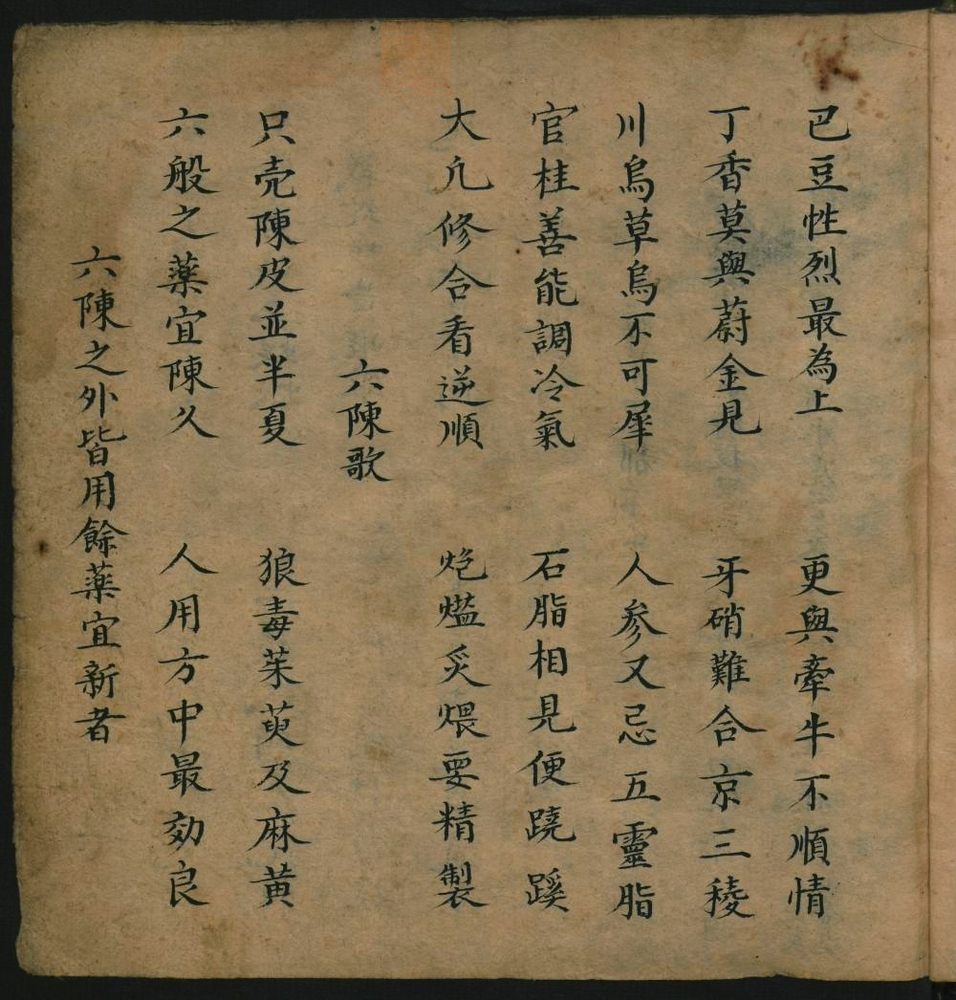 巴豆性烈最為上　更與牽牛不順情
丁香莫與蔚金見　牙硝難合京三稜
川烏草烏不可犀　人參又忌五靈脂
官桂善能調冷氣　石脂相見便蹺蹊
大凢修合看逆順　炮爁炙煨要精製
六陳歌
只壳陳皮並半夏　狼毒茱萸及麻黃
六般之藥宜陳久　人用方中最効良
六陳之外皆用餘藥宜新者